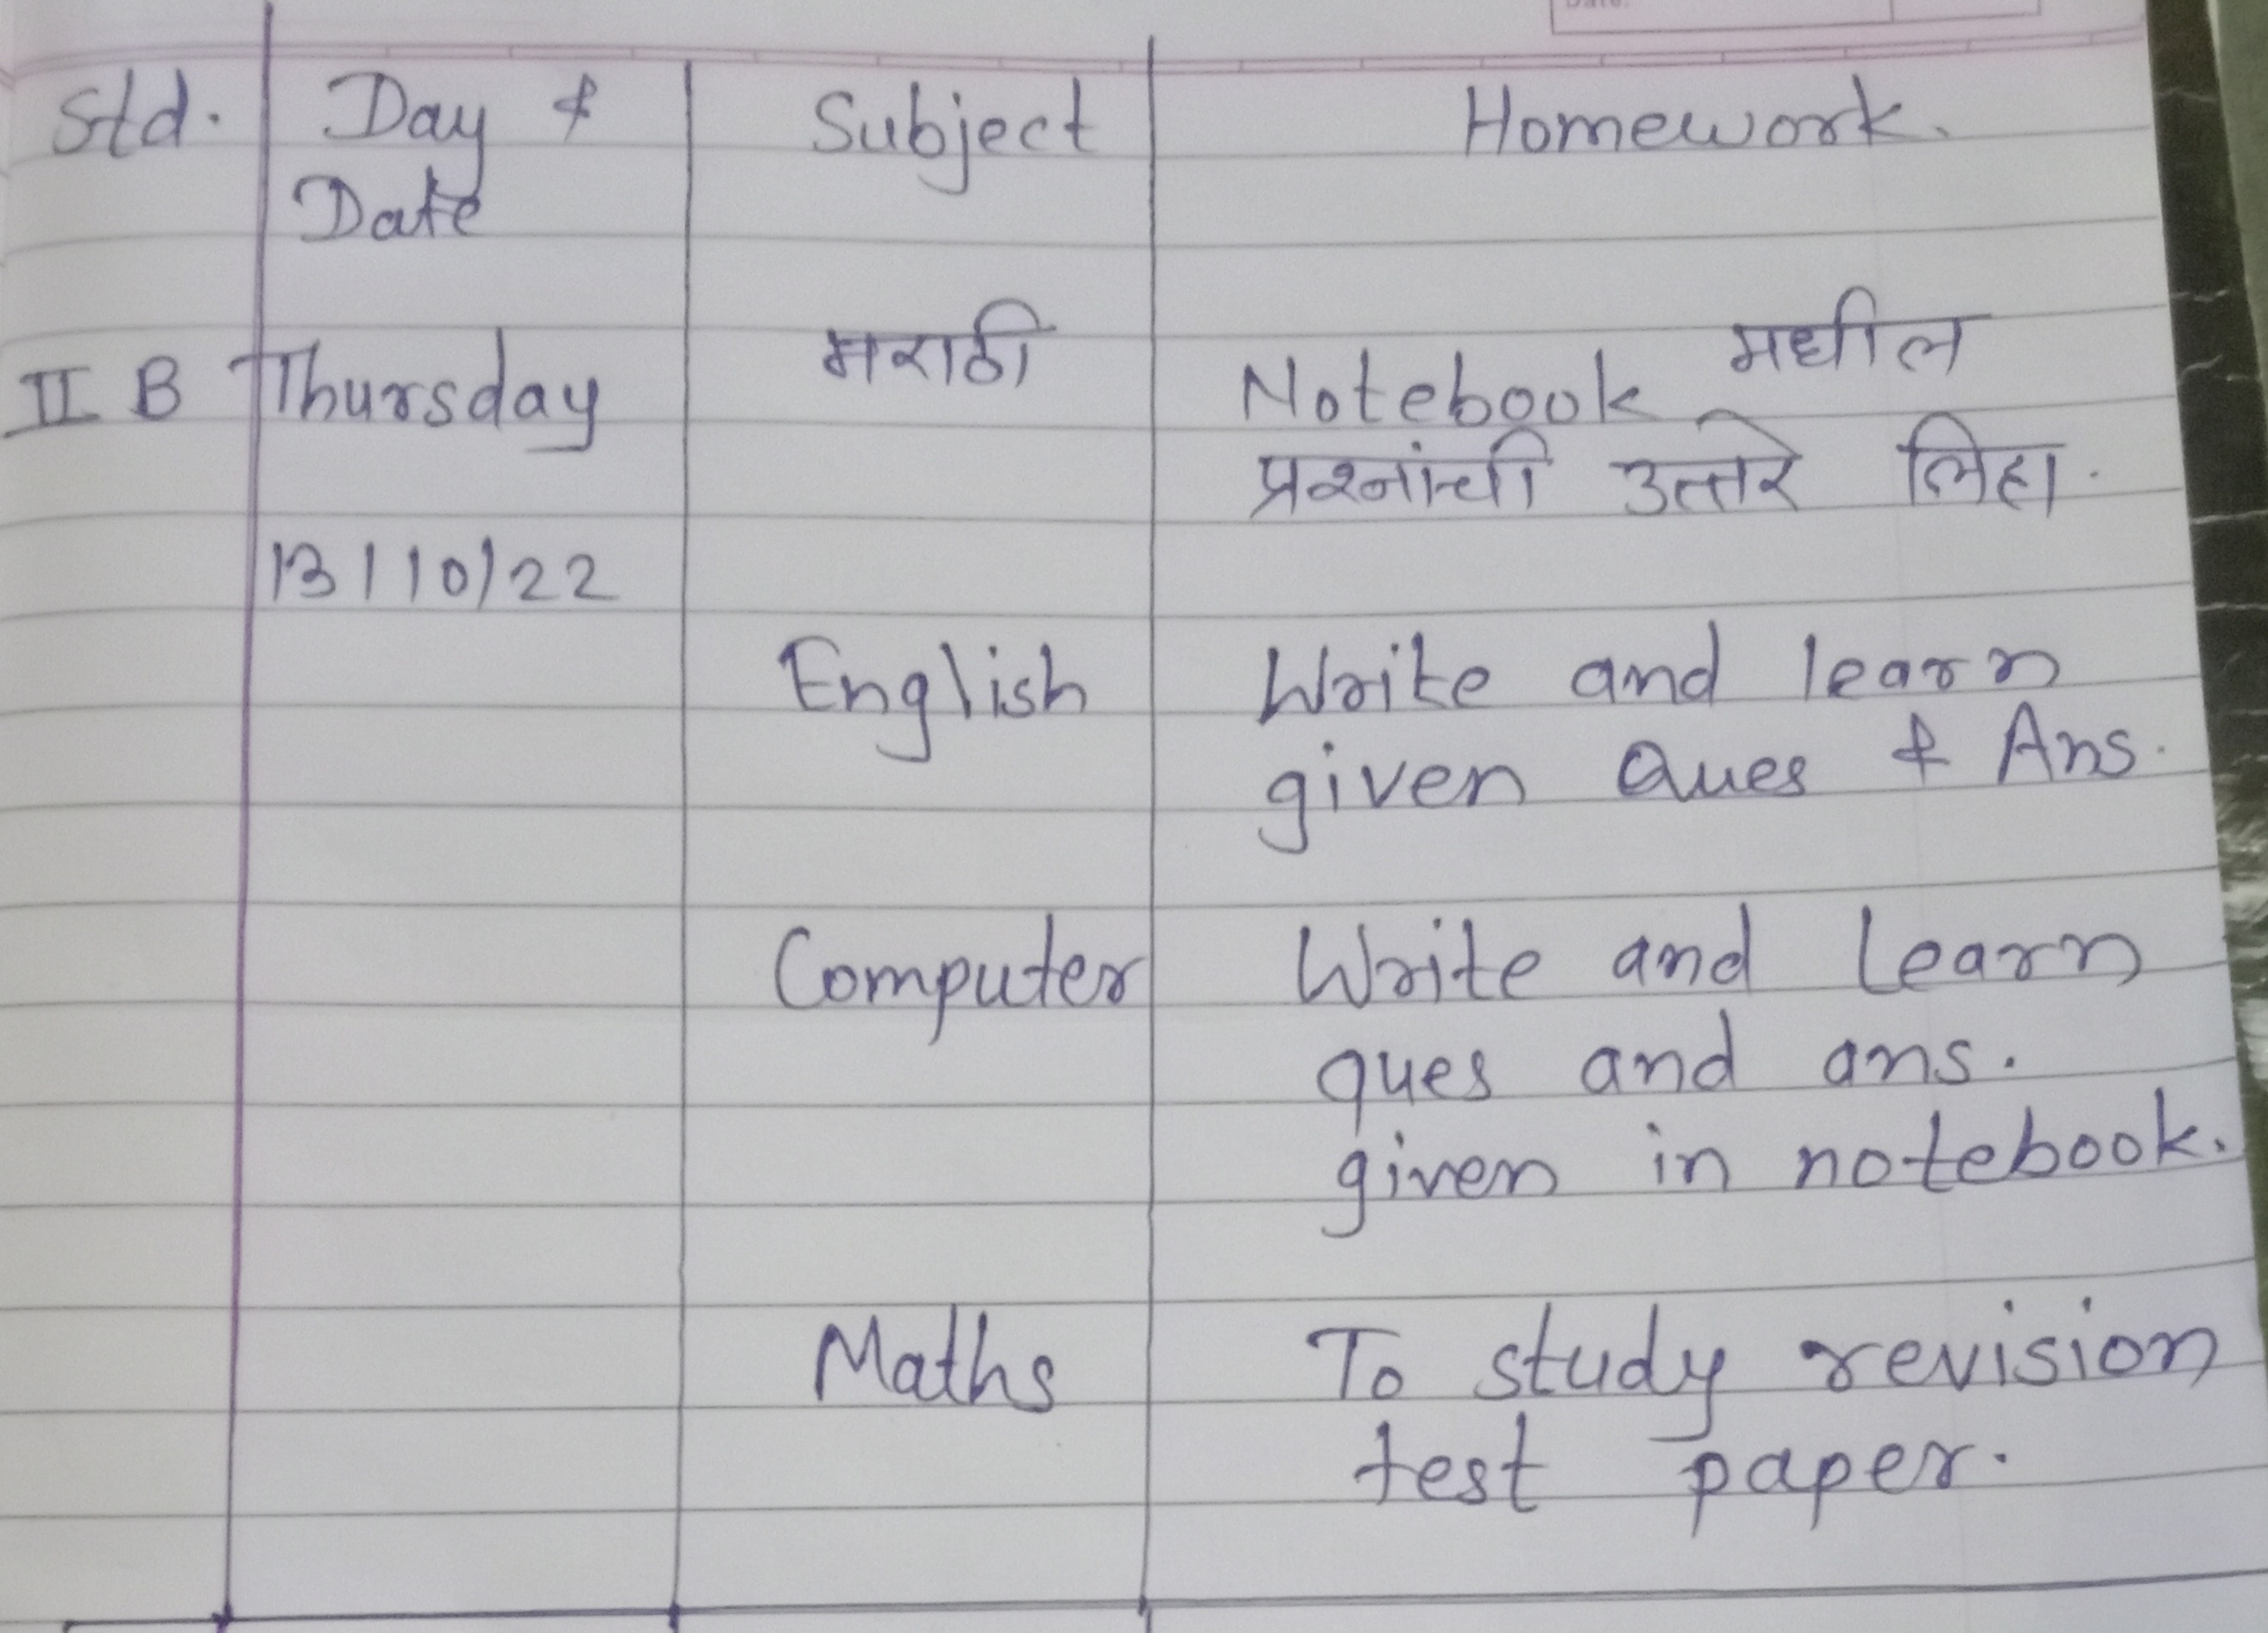 Date:
Std. Day & Date Subject Homework.
II B Thursday मराठी Notebook मधील
प्रश्नांची उत्तरे लिहा.
13/10/22
English Write and learn
given Ques & Ans.
Computer Write and learn
ques and ans.
given in notebook.
Maths To study revision
test paper.